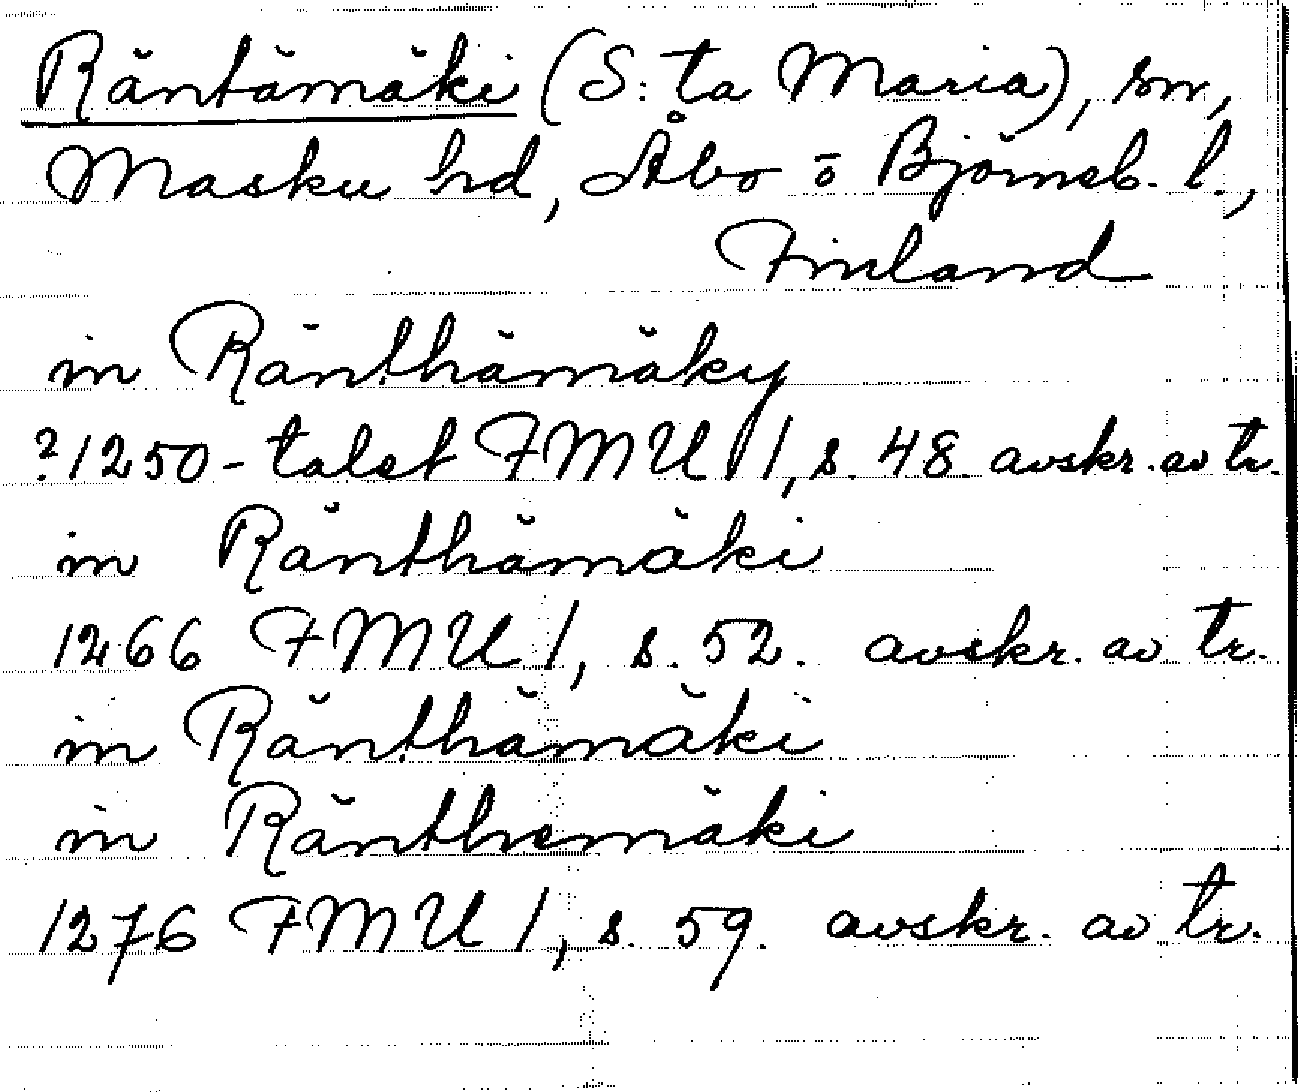 Räntämäki (S:ta Maria), sn,
Masku hd, Åbo o Björneb. l.,
Finland
in Ränthämäky
?1250-talet FMU 1, s. 48 avskr. av tr.
in Ränthämäki
1266 FMU 1, s. 52. avskr. av tr.
in Ränthämäki
in Ränthemäki
1276 FMU 1, s. 59. avskr. av tr.